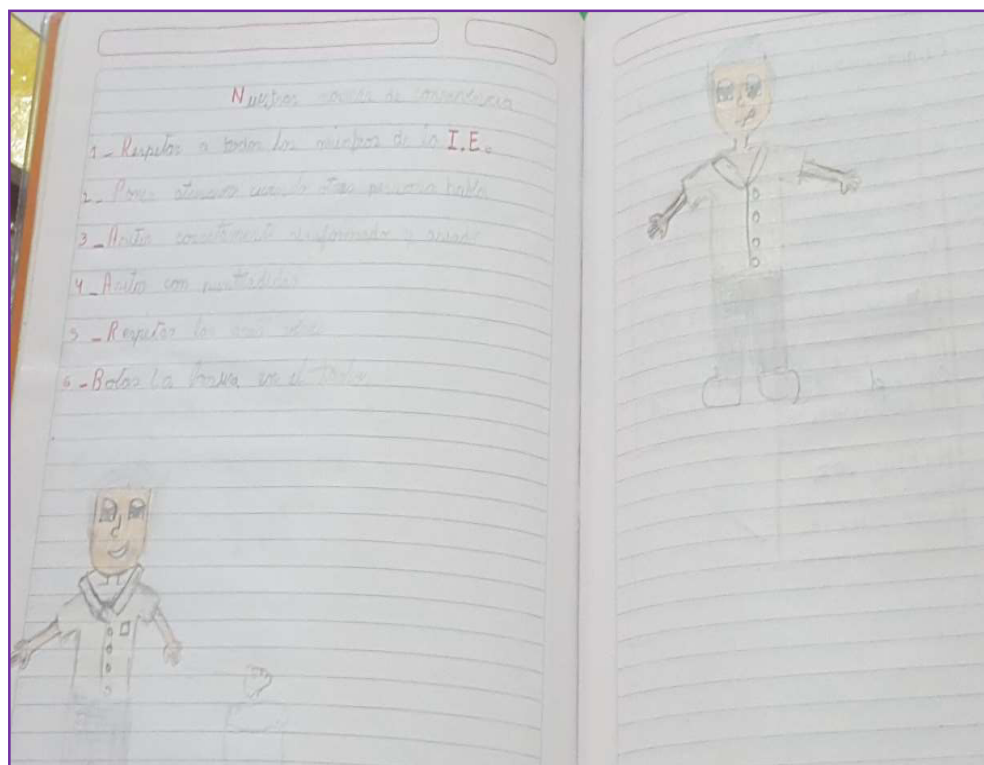 Nuestras normas de convivencia
1- Respetar a todos los miembros de la I.E.
2- Poner atencion cuando otra persona habla
3- Asistir correctamente uniformado y
4- Asistir con
5- Respetar las
6- Botar la basura en el